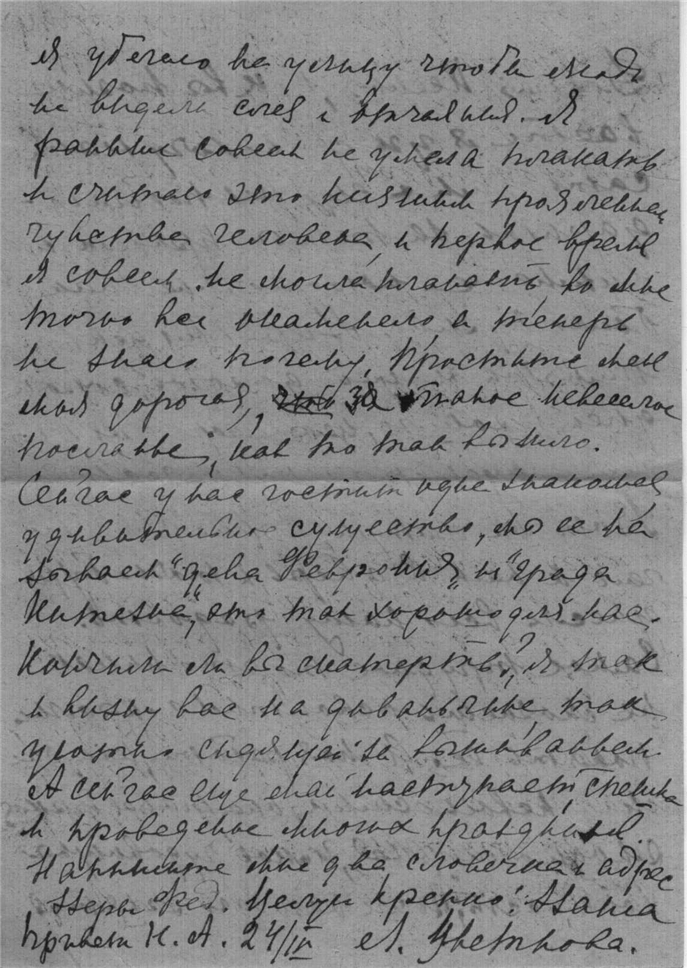 я убегаю на улицу чтобы люди
не видели слез и отчаяния. Я
раньше совсем не умела плакать
и считаю это низшим проявлением
чувства человека, и первое время
я совсем не могла плакать во мне
точно все окаменело, а теперь
не знаю почему, простите меня
моя дорогая, за такое невеселое
посланье, как то так вышло.
Сейчас у нас гостит одна знакомая,
удивительное существо, мы ее на
зываем "дева Феврония" из "града
Китежа", это так хорошо для нас.
Кончили ли вы скатерть?, я так
и вижу вас на диванчике, так
уютно сидящей за вышиваньем.
А сейчас еще май наступает, спешка
и проведение многих праздников.
Напишите мне два словечка и адрес
Веры Фед. Целую крепко! Ваша
Привет Н. А. 24/IV Л. Цветкова.